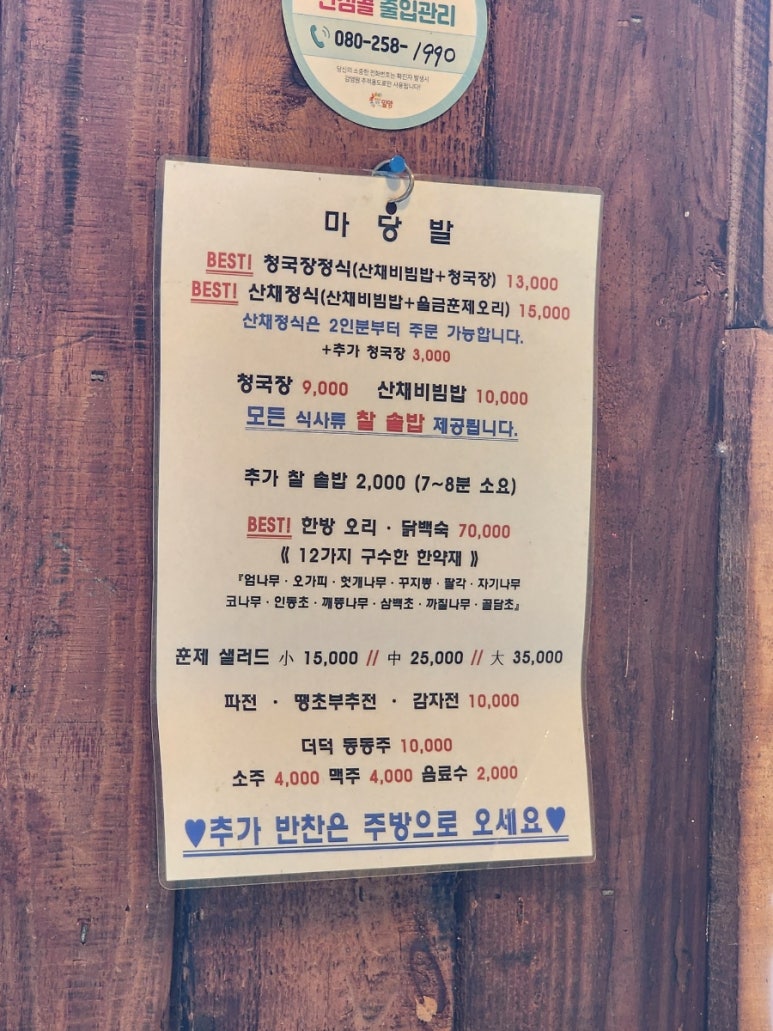 안심콜 출입관리
080-258-1990
당신의 소중한 전화번호는 확진자 발생시
감염원 추적용도로만 사용됩니다!
밀양
마 당 발
BEST! 청국장정식(산채비빔밥+청국장) 13,000
BEST! 산채정식(산채비빔밥+울금훈제오리) 15,000
산채정식은 2인분부터 주문 가능합니다.
+추가 청국장 3,000
청국장 9,000 산채비빔밥 10,000
모든 식사류 찰 솥밥 제공됩니다.
추가 찰 솥밥 2,000 (7~8분 소요)
BEST! 한방 오리 · 닭백숙 70,000
《 12가지 구수한 한약재 》
『엄나무 · 오가피 · 헛개나무 · 꾸지뽕 · 팔각 · 자기나무
코나무 · 인동초 · 깨똥나무 · 삼백초 · 까질나무 · 골담초』
훈제 샐러드 小 15,000 // 中 25,000 // 大 35,000
파전 · 땡초부추전 · 감자전 10,000
더덕 동동주 10,000
소주 4,000 맥주 4,000 음료수 2,000
♥추가 반찬은 주방으로 오세요♥